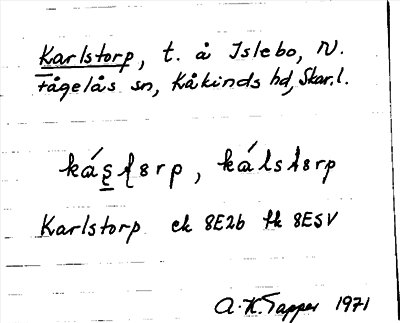 Karlstorp, t. å Islebo, N.
Fågelås sn, Kåkinds hd, Skar.l.
kás̱ţ8rp, kálst8rp
Karlstorp ek 8E2b fk 8E5V
A.K. Tapper 1971